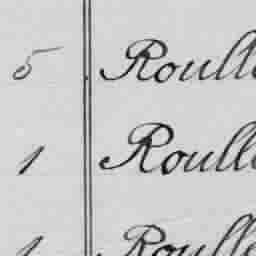 5 Roull
1 Roull
1 Roull